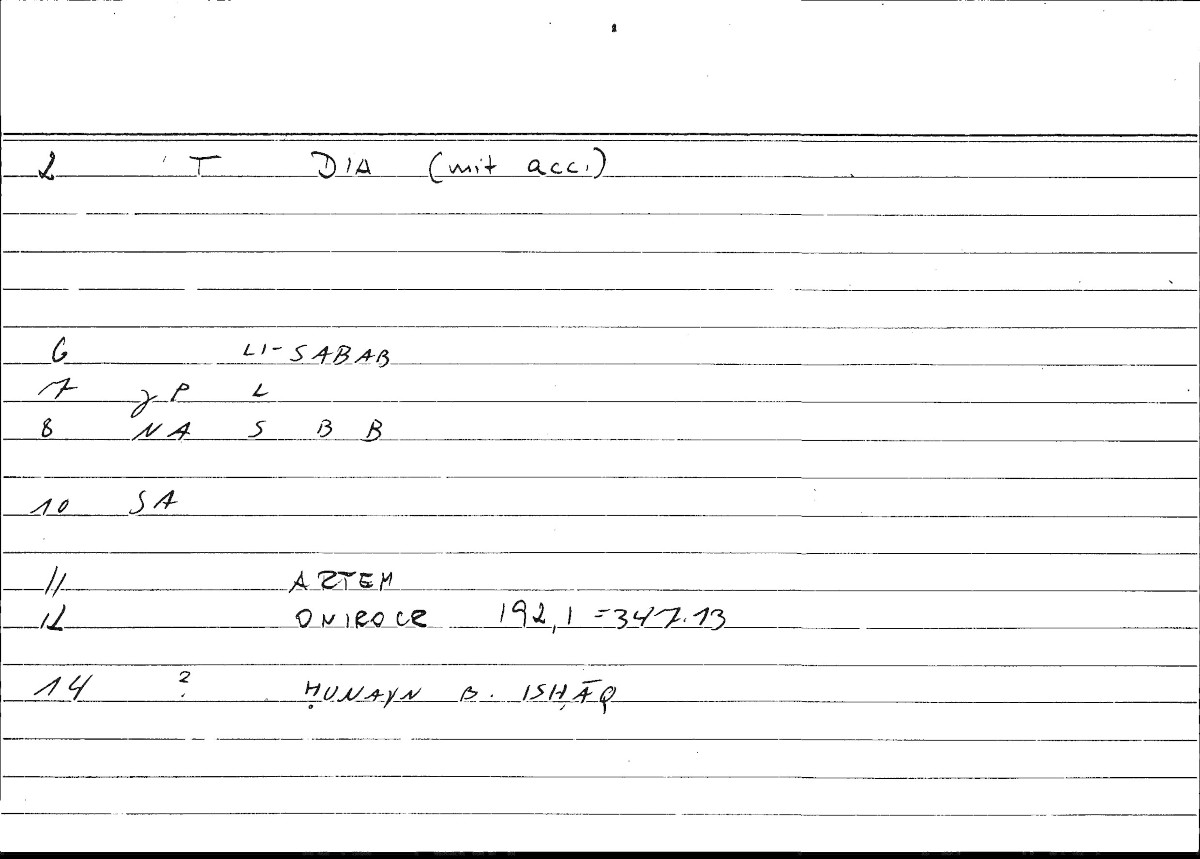 2 T DIA (mit acc.)
6 LI-SABAB
7 γP L
8 NA S B B
10 SA
11 ARTEM
12 ONIROCR 192,1 =347.13
14 2 ḤUNAYN B. ISḤĀQ